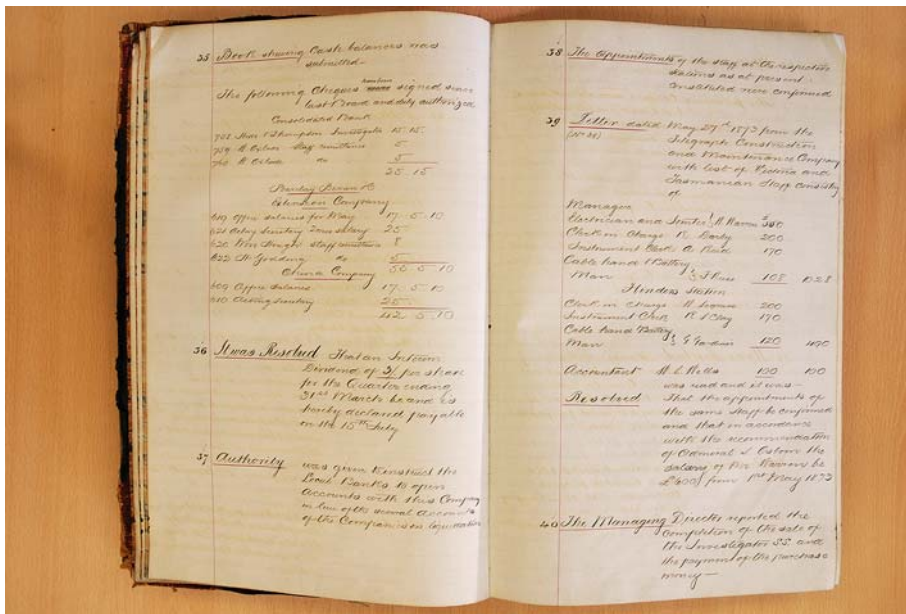 35 Book shewing Cash balances was
submitted—
The following Cheques numbered signed since
last Board and duly authorized
Consolidated Bank
Investigator 15.15.
759 R Oslear Staff remittance 5
760 R Oslear do 5
25.15
Barclay Bevan &Co
Extension Company
619 Office Salaries for May 17.5.10
621 Acting Secretary Salary 25
620 Staff remittance 8
622 H Godding do 5
55.5.10
China Company
609 Office Salaries 17.5.10
610 Acting Secretary 25
42.5.10
36 It was Resolved That an Interim
Dividend of 3/ per share
for the Quarter ending
31st March be and is
hereby declared payable
on the 15th July
37 Authority was given to instruct the
Local Banks to open
Accounts with this Company
in lieu of the several Accounts
of the Companies in liquidation
38 The Appointments of the Staff at the respective
Stations as at present
Constituted were confirmed
39 Letter dated May 27th 1873 from the
Telegraph Construction
and Maintenance Company
with list of Victoria and
Tasmanian Staff consisting
of
Manager
Electrician and R. Warren
Clerk in Charge R. Darby 200
Instrument Clerk A. Reid 170
Cable hand & Battery
Man 108 1028
Flinders Station
Clerk in Charge 200
Instrument Clerk R S Clay 170
Cable hand & Battery
Man G Gardner 120 490
Accountant 100 100
was read and it was—
Resolved That the appointments of
the same Staff be confirmed
and that in accordance
with the recommendation
of Admiral S. Osborn the
salary of Mr. Warren be
£400 from 1st May 1873
40 The Managing Director reported the
Completion of the sale of
the Investigator SS. and
the payment of the purchase
money—